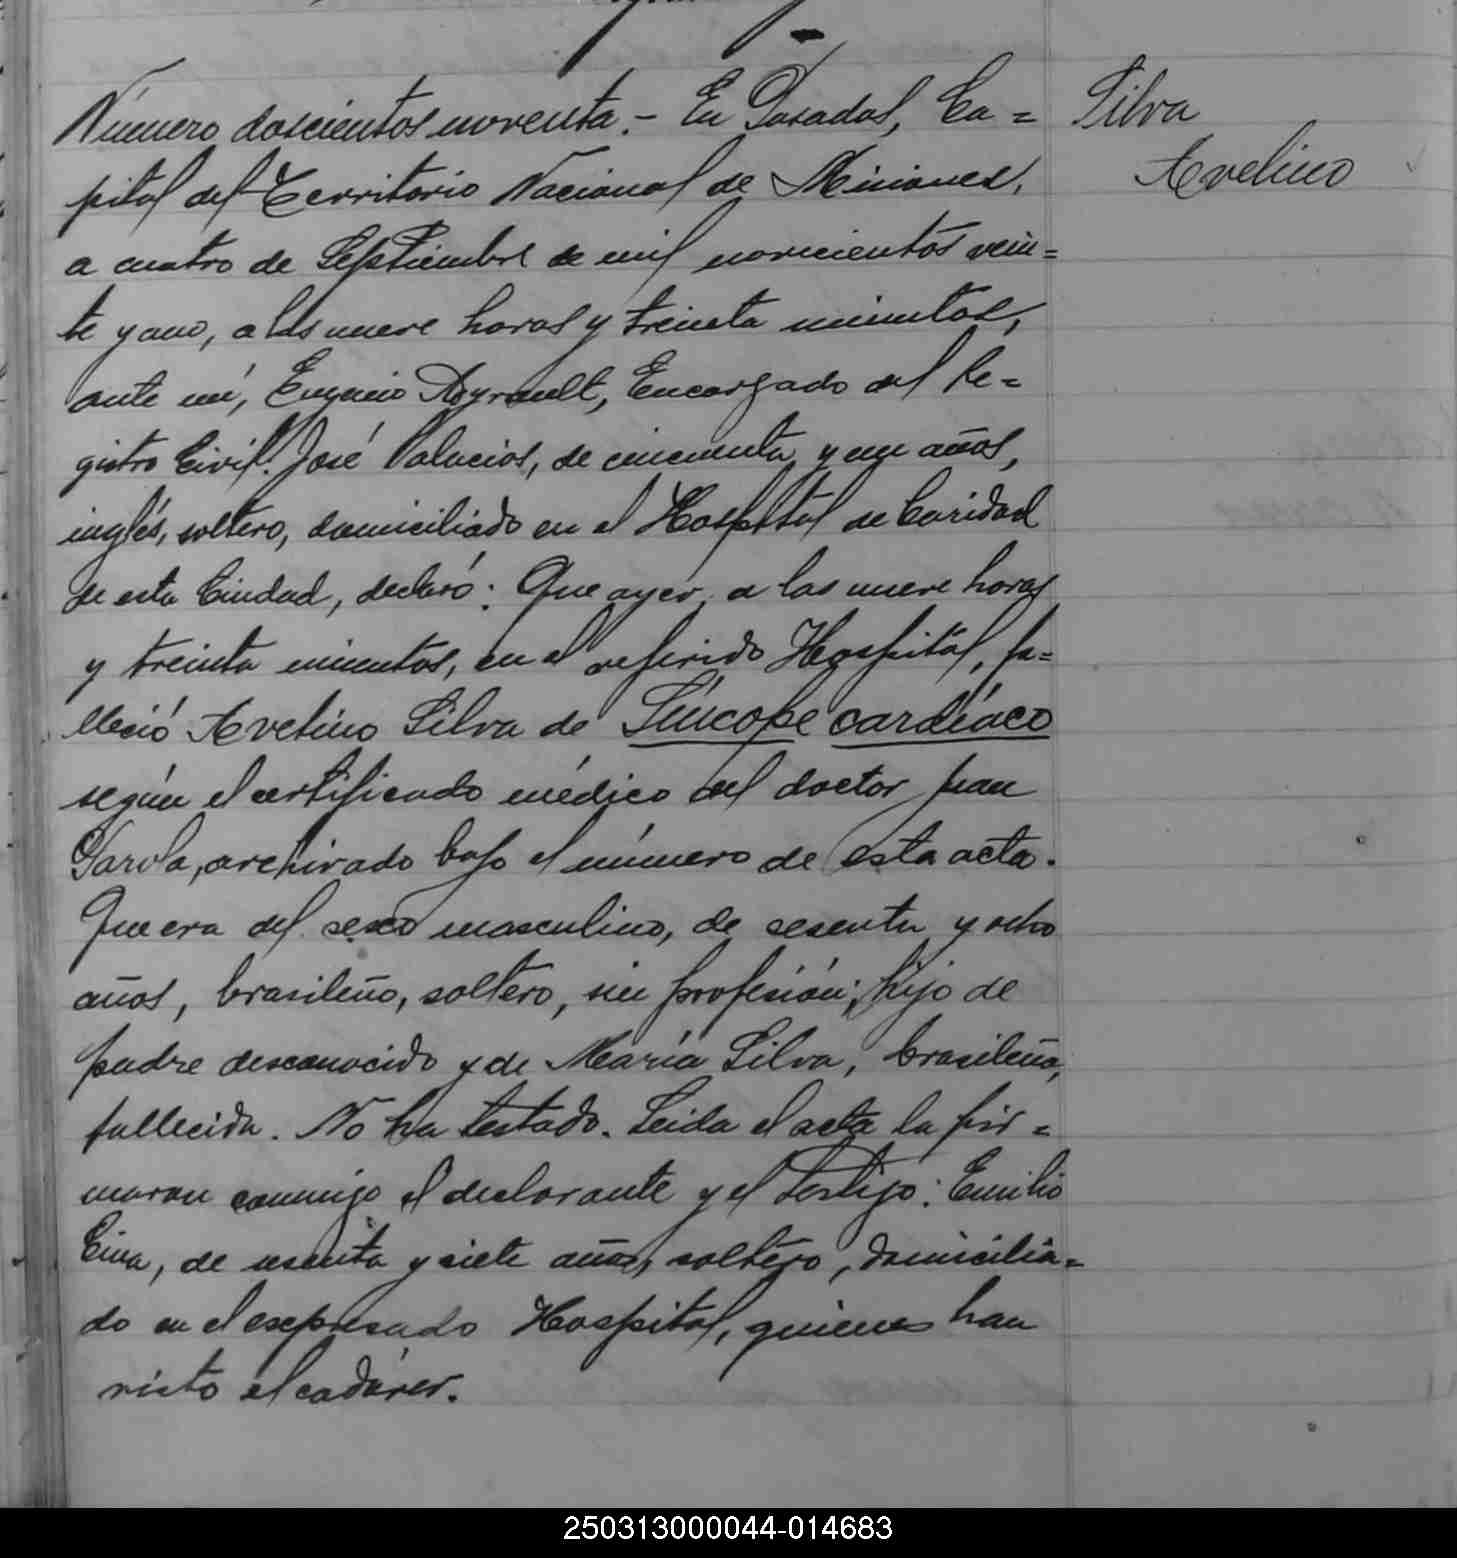 Número doscientos noventa.- En Posadas, Ca=
pital del Territorio Nacional de Misiones,
a cuatro de Septiembre de mil novecientos vein=
te y uno, a las nueve horas y treinta minutos,
ante mí, Eugenio Ayrault, Encargado del Re=
gistro Civil. José Palacios, de cincuenta y un años,
inglés, soltero, domiciliado en el Hospital de Caridad
de esta Ciudad, declaró: Que ayer, a las nueve horas
y treinta minutos, en el referido Hospital, fa=
lleció Avelino Silva de Síncope cardíaco
según el certificado médico del doctor Juan
archivado bajo el número de esta acta.
Que era del sexo masculino, de sesenta y ocho
años, brasileño, soltero, sin profesión; hijo de
padre desconocido y de María Silva, brasileña,
fallecida. No ha testado. Leida el acta la fir=
maron conmigo el declarante y el testigo: Emilio
de sesenta y siete años, soltero, domicilia=
do en el expresado Hospital, quienes han
visto el cadáver.
Silva
Avelino
250313000044-014683